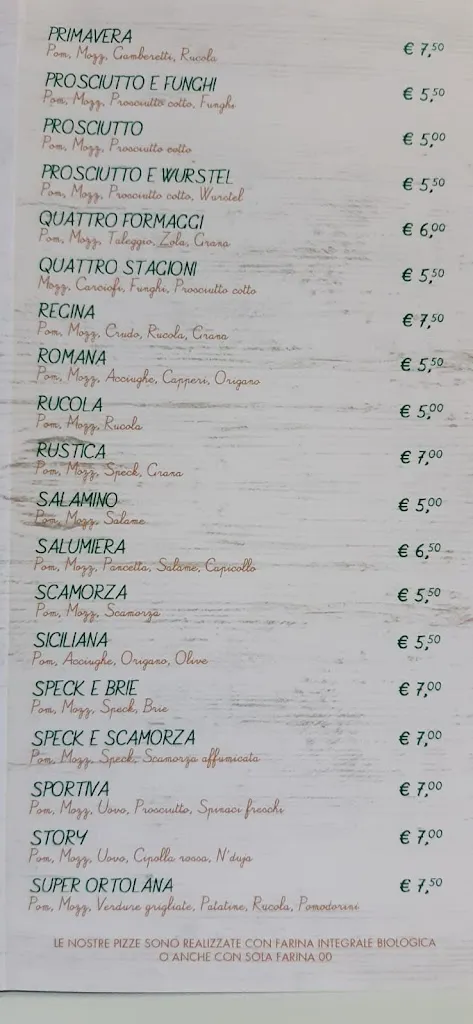 PRIMAVERA
Pom, Mozz, Gamberetti, Rucola
€ 7,50
PROSCIUTTO E FUNGHI
Pom, Mozz, Prosciutto cotto, Funghi
€ 5,50
PROSCIUTTO
Pom, Mozz, Prosciutto cotto
€ 5,00
PROSCIUTTO E WURSTEL
Pom, Mozz, Prosciutto cotto, Wurstel
€ 5,50
QUATTRO FORMAGGI
Pom, Mozz, Taleggio, Zola, Grana
€ 6,00
QUATTRO STAGIONI
Mozz, Carciofi, Funghi, Prosciutto cotto
€ 5,50
REGINA
Pom, Mozz, Crudo, Rucola, Grana
€ 7,50
ROMANA
Pom, Mozz, Acciughe, Capperi, Origano
€ 5,50
RUCOLA
Pom, Mozz, Rucola
€ 5,00
RUSTICA
Pom, Mozz, Speck, Grana
€ 7,00
SALAMINO
Pom, Mozz, Salame
€ 5,00
SALUMIERA
Pom, Mozz, Pancetta, Salame, Capicollo
€ 6,50
SCAMORZA
Pom, Mozz, Scamorza
€ 5,50
SICILIANA
Pom, Acciughe, Origano, Olive
€ 5,50
SPECK E BRIE
Pom, Mozz, Speck, Brie
€ 7,00
SPECK E SCAMORZA
Pom, Mozz, Speck, Scamorza affumicata
€ 7,00
SPORTIVA
Pom, Mozz, Uovo, Prosciutto, Spinaci freschi
€ 7,00
STORY
Pom, Mozz, Uovo, Cipolla rossa, N'duja
€ 7,00
SUPER ORTOLANA
Pom, Mozz, Verdure grigliate, Patatine, Rucola, Pomodorini
€ 7,50
LE NOSTRE PIZZE SONO REALIZZATE CON FARINA INTEGRALE BIOLOGICA
O ANCHE CON SOLA FARINA 00